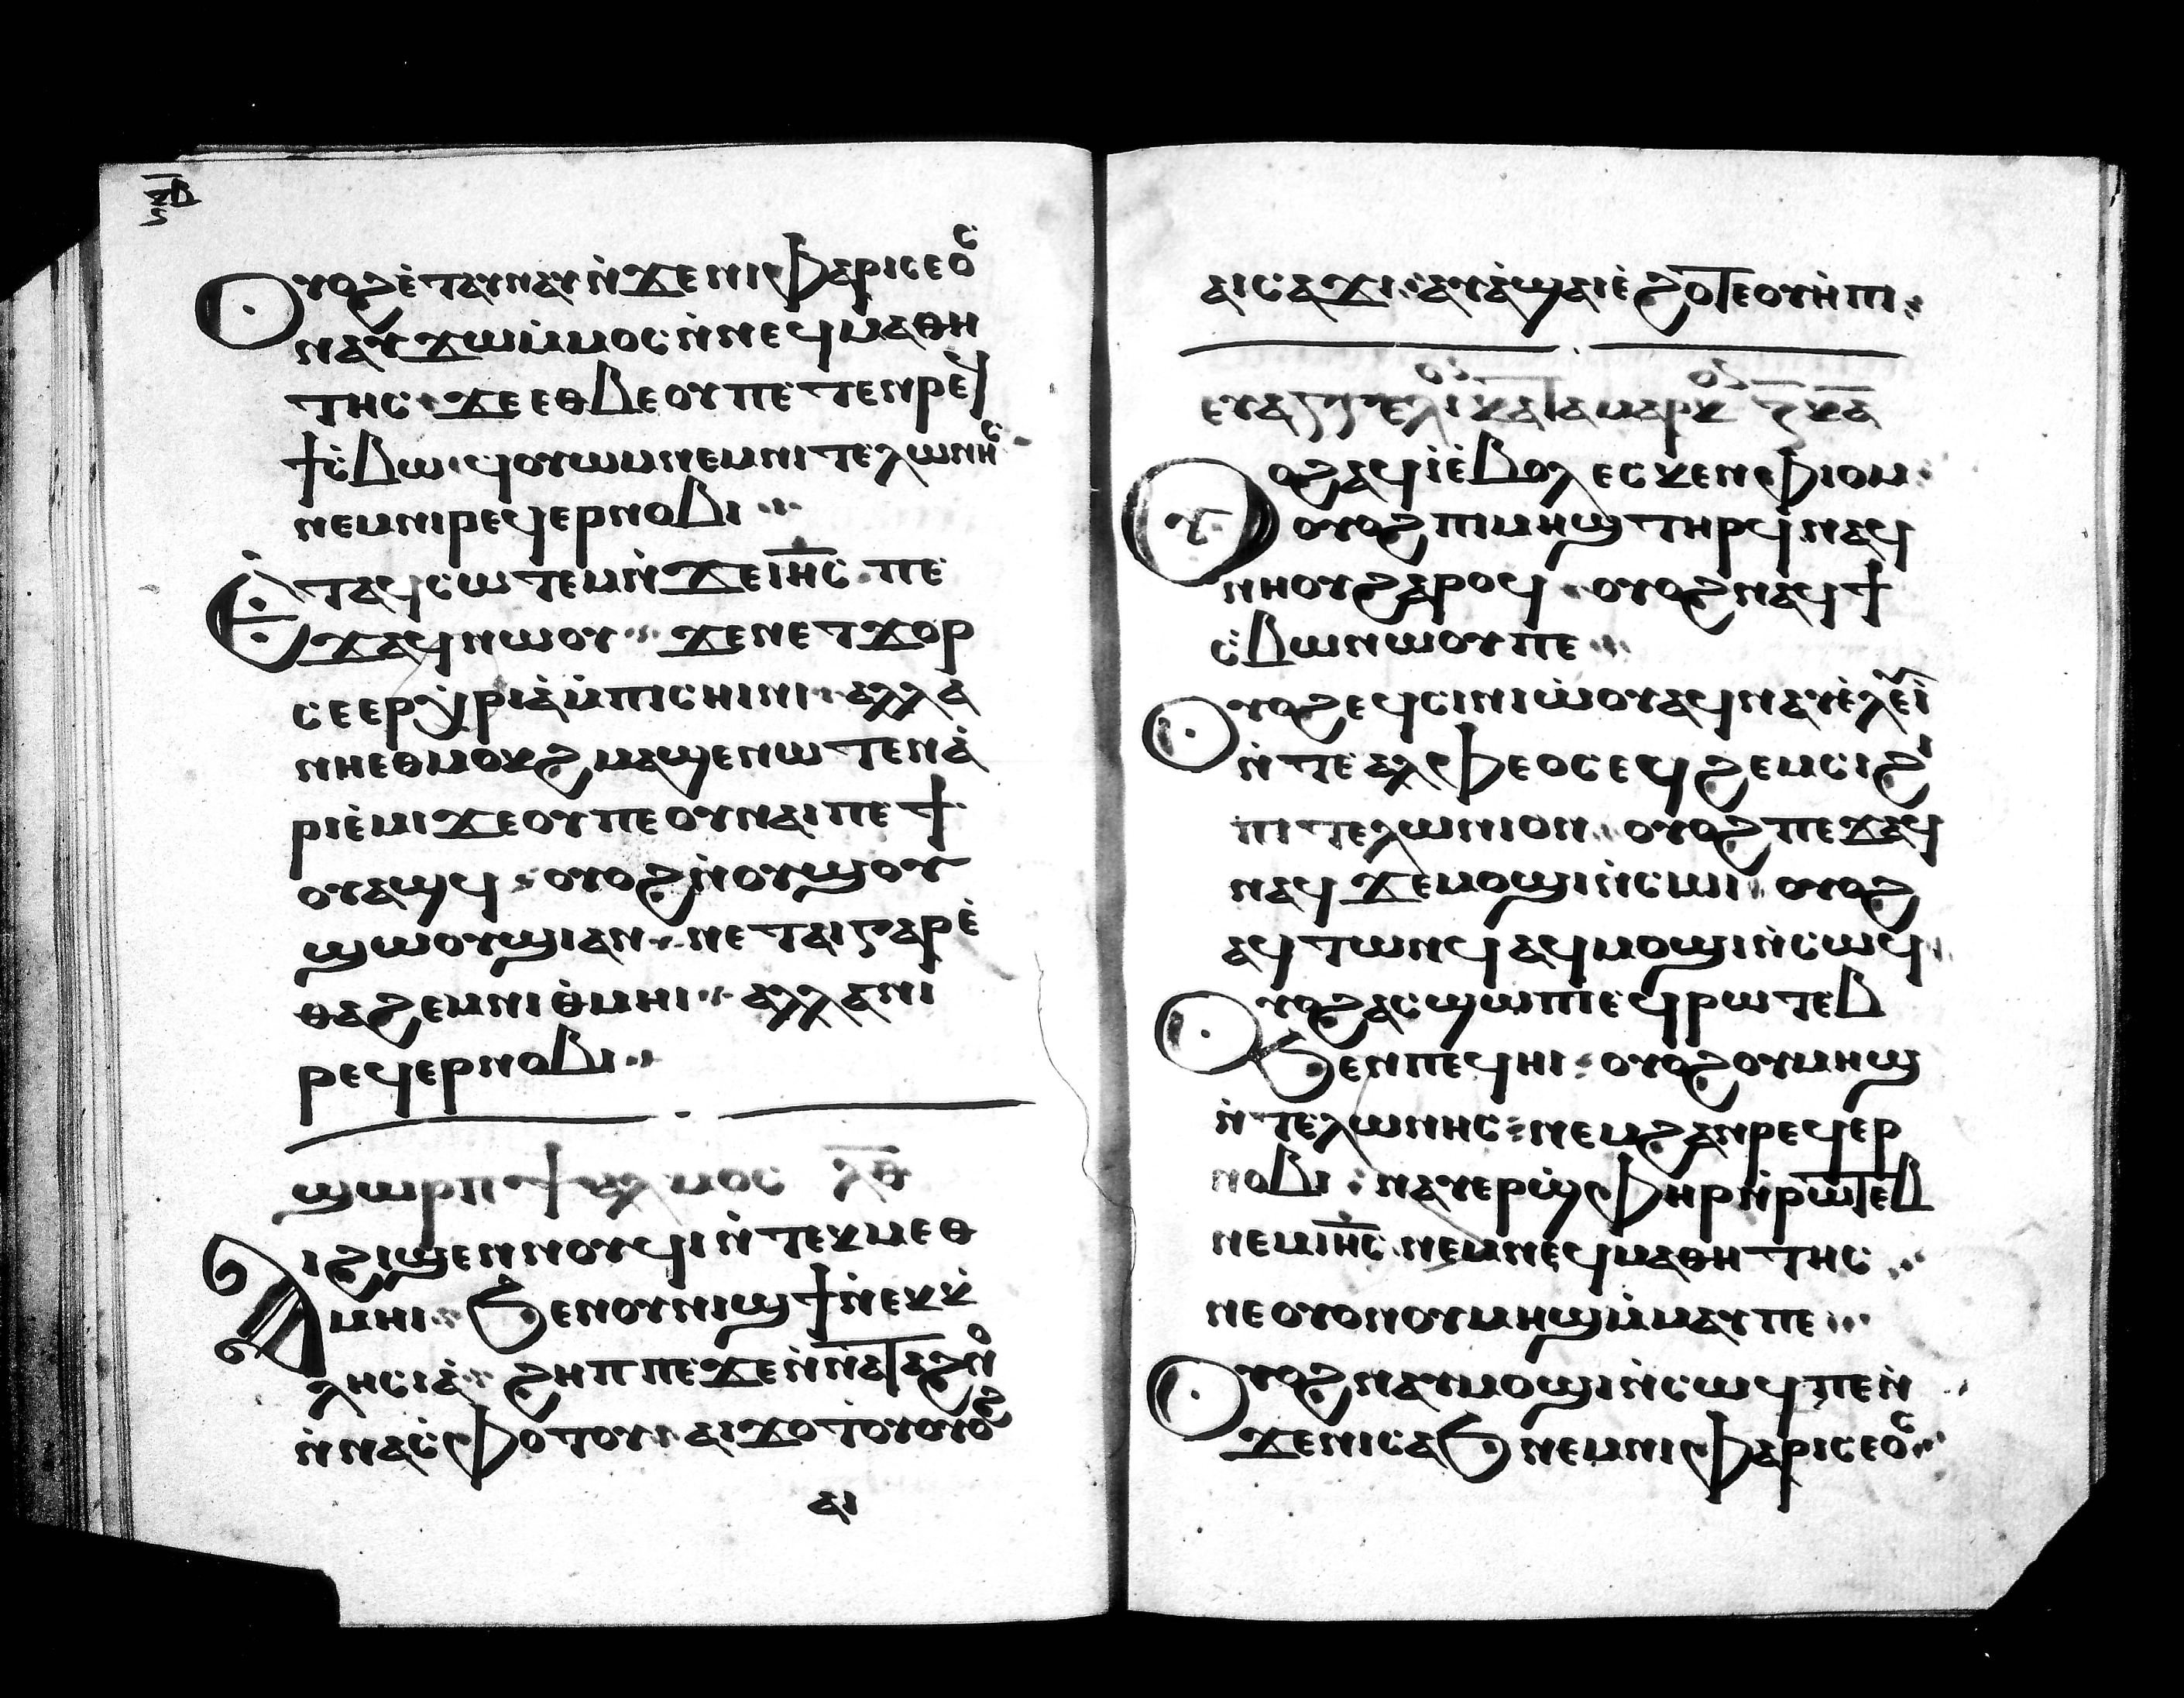 ⲝ̅ⲃ̅
Ⲟⲩⲟϩ ⲉ̀ⲧⲁⲩⲛⲁⲩ ⲛ̀ϫⲉⲛⲓⲫⲁⲣⲓⲥⲉⲟⲥ
ⲛⲁⲩϫⲱⲙ̀ⲙⲟⲥ ⲛ̀ⲛⲉϥⲙⲁⲑⲏ
ⲧⲏⲥ ϫⲉⲉⲑⲃⲉⲟⲩ ⲡⲉⲧⲉⲛⲣⲉϥ
ϯⲥ̀ⲃⲱ ϥⲟⲩⲱⲙ ⲛⲉⲙⲛⲓⲧⲉⲗⲱⲛⲏⲥ
ⲛⲉⲙⲛⲓⲣⲉϥⲉⲣⲛⲟⲃⲓ
Ⲉ̀ⲧⲁϥⲥⲱⲧⲉⲙ ⲛ̀ϫⲉⲓⲏ̅ⲥ ⲡⲉ
ϫⲁϥⲛⲱⲟⲩ ϫⲉⲛⲉⲧϫⲟⲣ
ⲥⲉⲉⲣⲭ̀ⲣⲓⲁ ⲙ̀ⲡⲓⲥⲏⲓⲛⲓ ⲁⲗⲗⲁ
ⲛⲏⲉⲑⲙⲟⲕϩ ⲙⲁϣⲉⲛⲱⲧⲉⲛ ⲁ̀
ⲣⲓⲉ̀ⲙⲓ ϫⲉⲟⲩⲡⲉ ⲟⲩⲛⲁⲓ ⲡⲉϯ
ⲟⲩⲁϣϥ ⲟⲩⲟϩ ⲛ̀ⲟⲩϣⲟⲩ
ϣⲱⲟⲩϣⲓ ⲁⲛ ⲛⲉⲧⲁⲓⲅⲁⲣ ⲉ̀
ⲑⲁϩⲉⲙⲛⲓⲑ̀ⲙⲏⲓ ⲁⲗⲗⲁ ⲛⲓ
ⲣⲉϥⲉⲣⲛⲟⲃⲓ
ϣⲱⲣⲡ ⲯⲁⲗⲙⲟⲥ ⲗ̅ⲑ̅
Ⲁⲓϩⲓϣⲉⲛⲛⲟⲩϥⲓ ⲛ̀ⲧⲉⲕⲙⲉⲑ
ⲙⲏⲓ ϧⲉⲛⲟⲩⲛⲓϣϯ ⲛ̀ⲉⲕⲕ̀
ⲗⲏⲥⲓⲁ̀ ϩⲏⲡⲡⲉ ϫⲉⲛ̀ⲛⲁⲧⲁϩⲛⲟ
ⲛ̀ⲛⲁⲥ̀ⲫⲟⲧⲟⲩ ⲁⲓϫⲟⲧⲟⲩ ⲟⲩⲟϩ
ⲁⲓ
ⲁⲓⲥⲁϫⲓ ⲁⲩⲁ̀ϣⲁⲓ ⲉ̀ϩⲟⲧⲉⲟⲩⲏ̀ⲡⲓ
ⲉⲩⲁⲅⲅⲉⲗⲓⲟⲛ ⲕⲁⲧⲁ ⲙⲁⲣⲕⲟⲛ ⲍ̅ ⲕ̅ⲁ̅
Ⲟⲩⲟϩ ⲁϥⲓ̀ⲉ̀ⲃⲟⲗ ⲉⲥⲕⲉⲛ ⲫⲓⲟⲙ
ⲟⲩⲟϩ ⲡⲓⲙⲏϣ ⲧⲏⲣϥ ⲛⲁϥ
ⲛⲏⲟⲩ ϩⲁⲣⲟϥ ⲟⲩⲟϩ ⲛⲁϥϯ
ⲥ̀ⲃⲱ ⲛⲱⲟⲩ ⲡⲉ
Ⲟⲩⲟϩ ⲉϥⲥⲓⲛⲓⲱ̀ⲟⲩ ⲁϥⲛⲁⲩ ⲉ̀ⲗⲉⲩⲓ
ⲛ̀ⲧⲉ ⲁⲗⲫⲉⲟⲥ ⲉϥϩⲉⲙⲥⲓ ϩⲓ
ⲡⲓⲧⲉⲗⲱⲛⲓⲟⲛ ⲟⲩⲟϩ ⲡⲉϫⲁϥ
ⲛⲁϥ ϫⲉⲙⲟϣⲓ ⲛ̀ⲥⲱⲓ ⲟⲩⲟϩ
ⲁϥⲧⲱⲛϥ ⲁϥⲙⲟϣⲓ ⲛ̀ⲥⲱϥ
Ⲟⲩⲟϩ ⲁⲥϣⲱⲡⲓ ⲉϥⲣⲱⲧⲉⲃ
ϧⲉⲛⲡⲉϥⲏⲓ ⲟⲩⲟϩ ⲟⲩⲙⲏϣ
ⲛ̀ⲧⲉⲗⲱⲛⲏⲥ ⲛⲉⲙϩⲁⲛⲣⲉϥⲉⲣ
ⲛⲟⲃⲓ ⲛⲁⲩⲉⲣϣ̀ⲫⲏⲣ ⲛ̀ⲣⲱⲧⲉⲃ
ⲛⲉⲙⲓⲏ̅ⲥ ⲛⲉⲙⲛⲉϥⲙⲁⲑⲏⲧⲏⲥ
ⲛⲉⲟⲩⲟⲛⲟⲩⲙⲏϣ ⲙ̀ⲙⲁⲩ ⲡⲉ
Ⲟⲩⲟϩ ⲛⲁⲩⲙⲟϣⲓ ⲛ̀ⲥⲱϥ ⲡⲉ ⲛ̀
ϫⲉⲛⲓⲥⲁϧ ⲛⲉⲙⲛⲓⲫⲁⲣⲓⲥⲉⲟⲥ